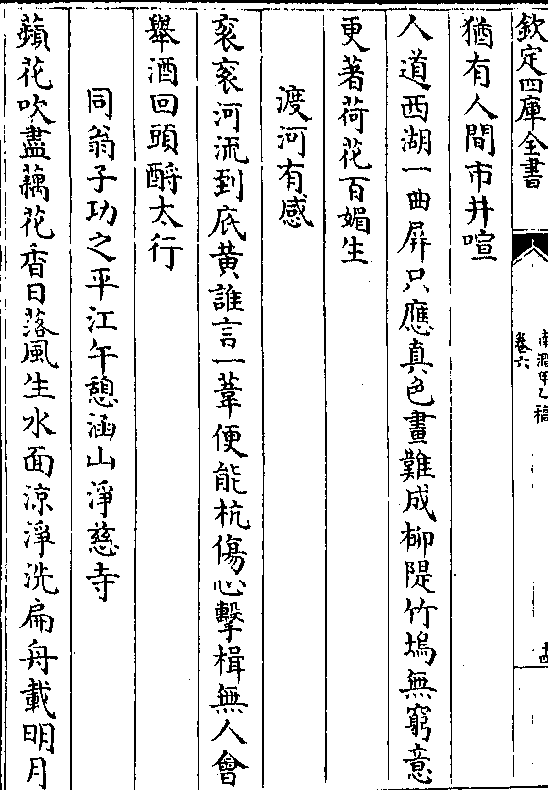 欽定四庫全書
南澗甲乙稿
卷六
猶有人間市井喧
人道西湖一曲屏只應真色畫難成柳隄竹塢無窮意
更著荷花百媚生
渡河有感
衮衮河流到底黄誰言一葦便能杭傷心擊楫無人會
舉酒回頭酹太行
同翁子功之平江午憩涵山淨慈寺
蘋花吹盡藕花香日落風生水面涼淨洗扁舟載明月